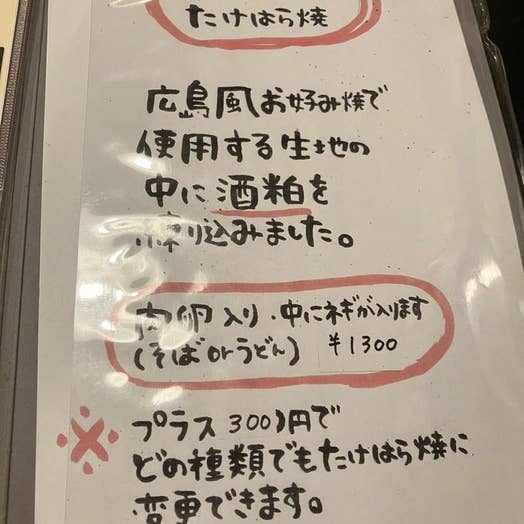 たけはら焼
広島風お好み焼で
使用する生地の
中に酒粕を
練り込みました。
肉卵入り・中にネギが入ります
(そばorうどん) ¥1300
※ プラス300円で
どの種類でもたけはら焼に
変更できます。